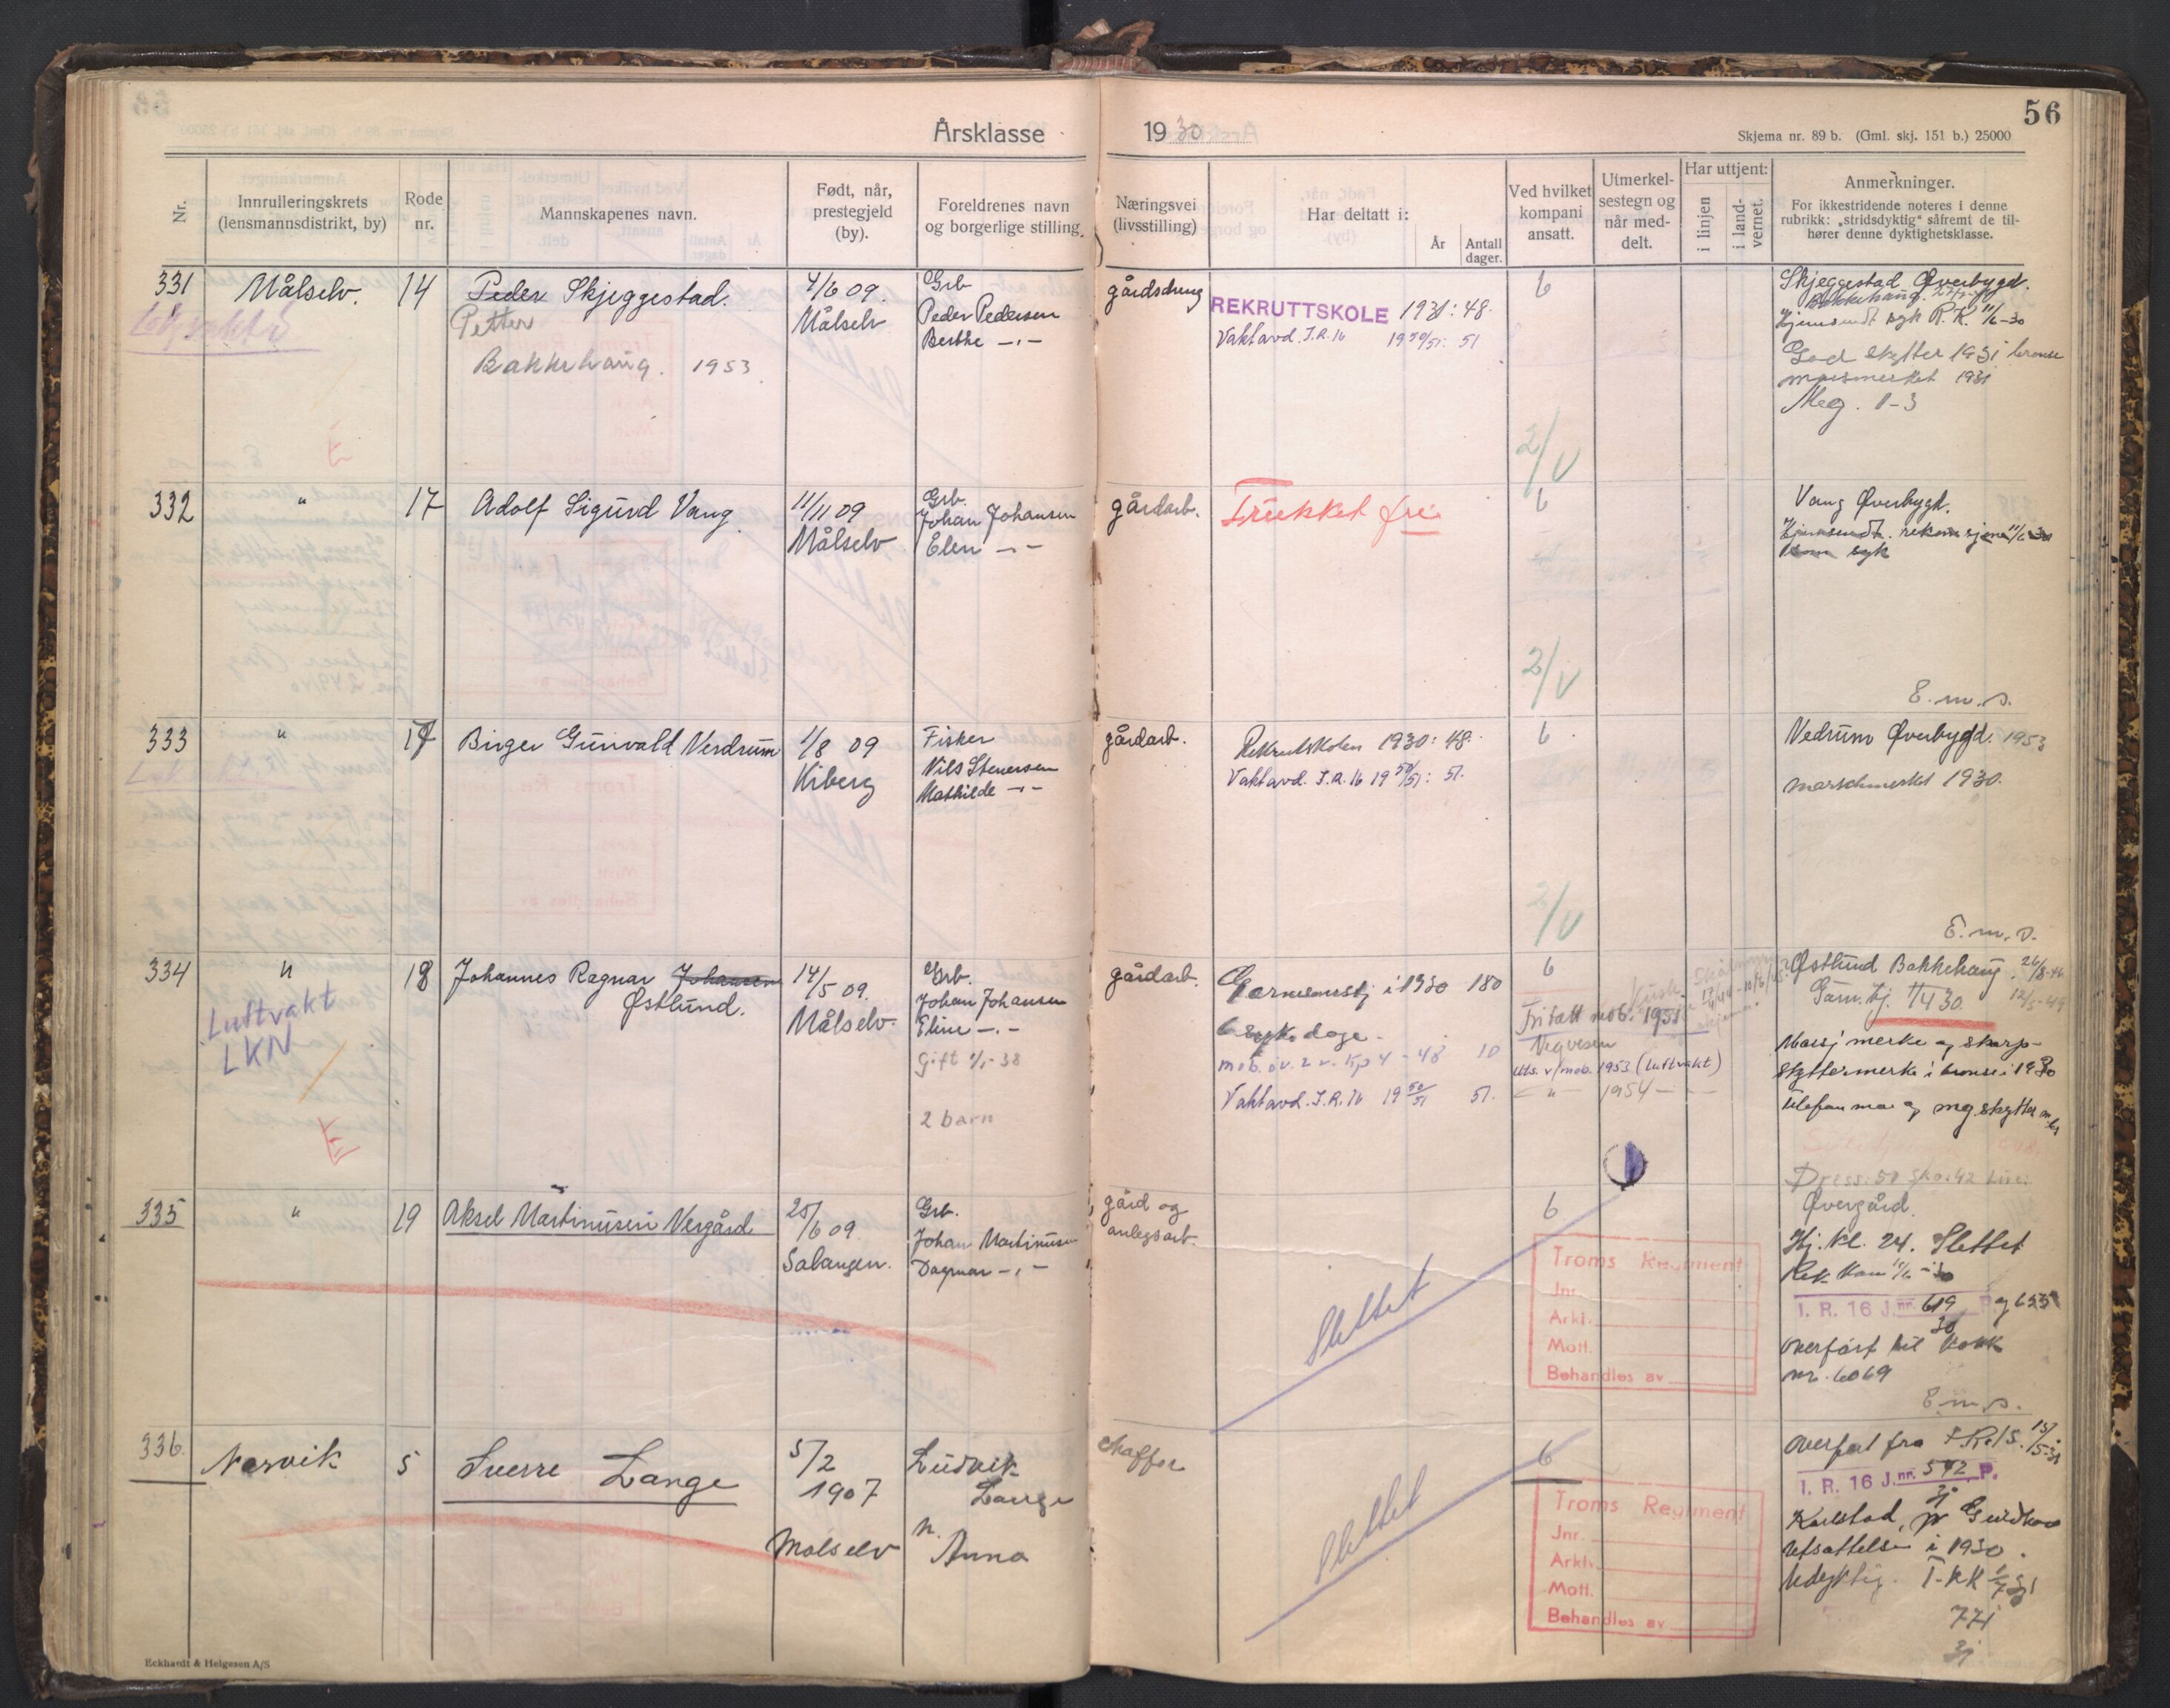 56
Årsklasse 1930
Skjema nr. 89 b. (Gml. skj. 151 b.) 25000
Nr.
Innrulleringskrets
(lensmannsdistrikt, by)
Rode
nr.
Mannskapenes navn.
Født, når,
prestegjeld
(by).
Foreldrenes navn
og borgerlige stilling.
Næringsvei
(livsstilling)
Har deltatt i:
År
Antall
dager.
Ved hvilket
kompani
ansatt.
Utmerkel-
sestegn og
når med-
delt.
Har uttjent:
i linjen
i land-
vernet.
Anmerkninger.
For ikkestridende noteres i denne
rubrikk: „stridsdyktig" såfremt de til-
hører denne dyktighetsklasse.
331
Målselv.
14
Peder Skjeggestad.
Petter
Bakkehaug. 1953
4/6 09.
Målselv
Grb
Peder Pedersen
Berthe -"-
gårdsdreng
REKRUTTSKOLE 1931: 48.
Vaktavd. I.R. 16 1950/51: 51
6
2/V
Skjeggestad Øverbygd.
Bakkehaug.
Hjemsendt syk R.K. 11/6-30
God skytter 1931 bronse
marsmerket 1931
Meg. 1-3
E
332
"
17
Adolf Sigurd Vang
11/11 09
Målselv
Grb.
Johan Johansen
Elen -"-
gårdarb.
Trukket fri
6
2/V
Vang Øverbygd.
Hjemsendt. 11/6 30
syk
E.m.s.
333
"
17
Birger Gunvald Verdrum
1/8 09
Kiberg
Fisker
Nils Stenersen
Mathilde -"-
gårdarb.
Rekrutskolen 1930: 48.
Vaktavd. I.R. 16 1950/51: 51.
6
2/V
Vedrum Øverbygd. 1953
marschmerket 1930.
E.m.s.
334
"
Luftvakt
LKN
E
18
Johannes Ragnar Johansen
Østlund.
14/5 09.
Målselv.
Grb.
Johan Johansen
Eline -"-
Gift 1/1-38
2 barn
gårdarb.
Garnisonstj i 1930 180
6 sykedage.
mob. øv. 2 v. Kp 4 - 48 10
Vaktavd. I.R. 16 1950/51 51.
6
Fritatt mob. 1951
Vegvesen
Uts. v/mob. 1953 (Luftvakt)
- " - 1954 - -
Østlund Bakkehaug. 26/8-46
Garn. tj. 1/4 30. 12/5-49
Marsj merke og skarp-
skyttermerke i bronse i 1930
Telefon og mg. skytter
Dress: 50 Sko: 42
335
"
19
Aksel Martinusen Vergård
25/6 09
Salangen.
Grb.
Johan Martinusen
Dagmar -"-
gård og
anlegsarb.
Slettet
6
Troms Regiment
Jnr.
Arkl.
Mott.
Behandles av
Øvergård.
Hj. kl. 24. Slettet
Rek. kom 11/6-30
I. R. 16 J.nr. 619 P. og 633
30
Overført til
nr. 6069
E.m.s.
336.
Narvik
5
Sverre Lange
5/2
1907
Målselv
Ludvik
Lange
n.
Anna
chaffør
Slettet
6
Troms Regiment
Jnr.
Arkiv
Mott.
Behandles av
Overført fra I.R. 15. 15/5-31
I. R. 16 J.nr. 572 P.
31
Karlstad,
Utsættelse i 1930.
Udyktig.
771
31
Eckhardt & Helgesen A/S